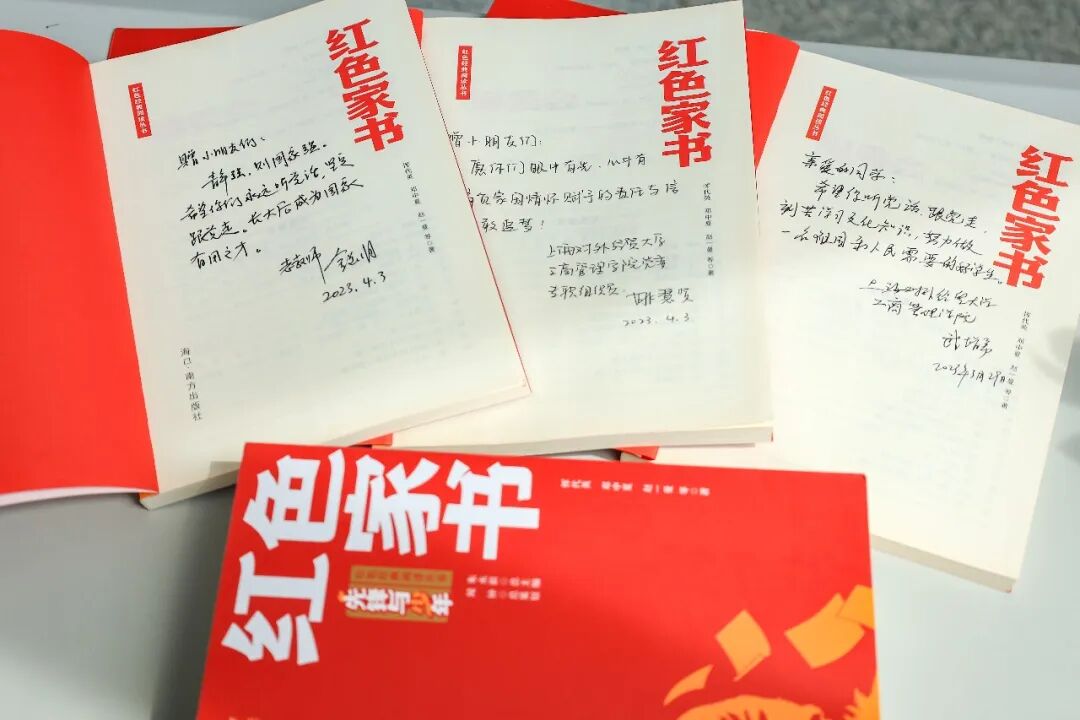 红色家书
红色经典阅读丛书
赠小朋友们:
青强,则国家强。
希望你们永远听党话,坚定
跟党走。长大后成为国家
有用之才。
老教师
2023.4.3
恽代英 邓中夏 赵一曼 等 著
海口·南方出版社
红色家书
红色经典阅读丛书
赠小朋友们:
愿你们眼中有光,心中有
家国情怀
上海对外经贸大学
工商管理学院党委
2023.4.3
恽代英 邓中夏 赵一曼 等 著
红色家书
红色经典阅读丛书
亲爱的同学:
希望你听党话,跟党走,
刻苦学习文化知识,努力做
一名祖国和人民需要的好学生。
上海对外经贸大学
工商管理学院
2023年3月29日
恽代英 邓中夏 赵一曼 等 著
红色家书
恽代英 邓中夏 赵一曼 等 著
红色经典阅读丛书
先锋与少年